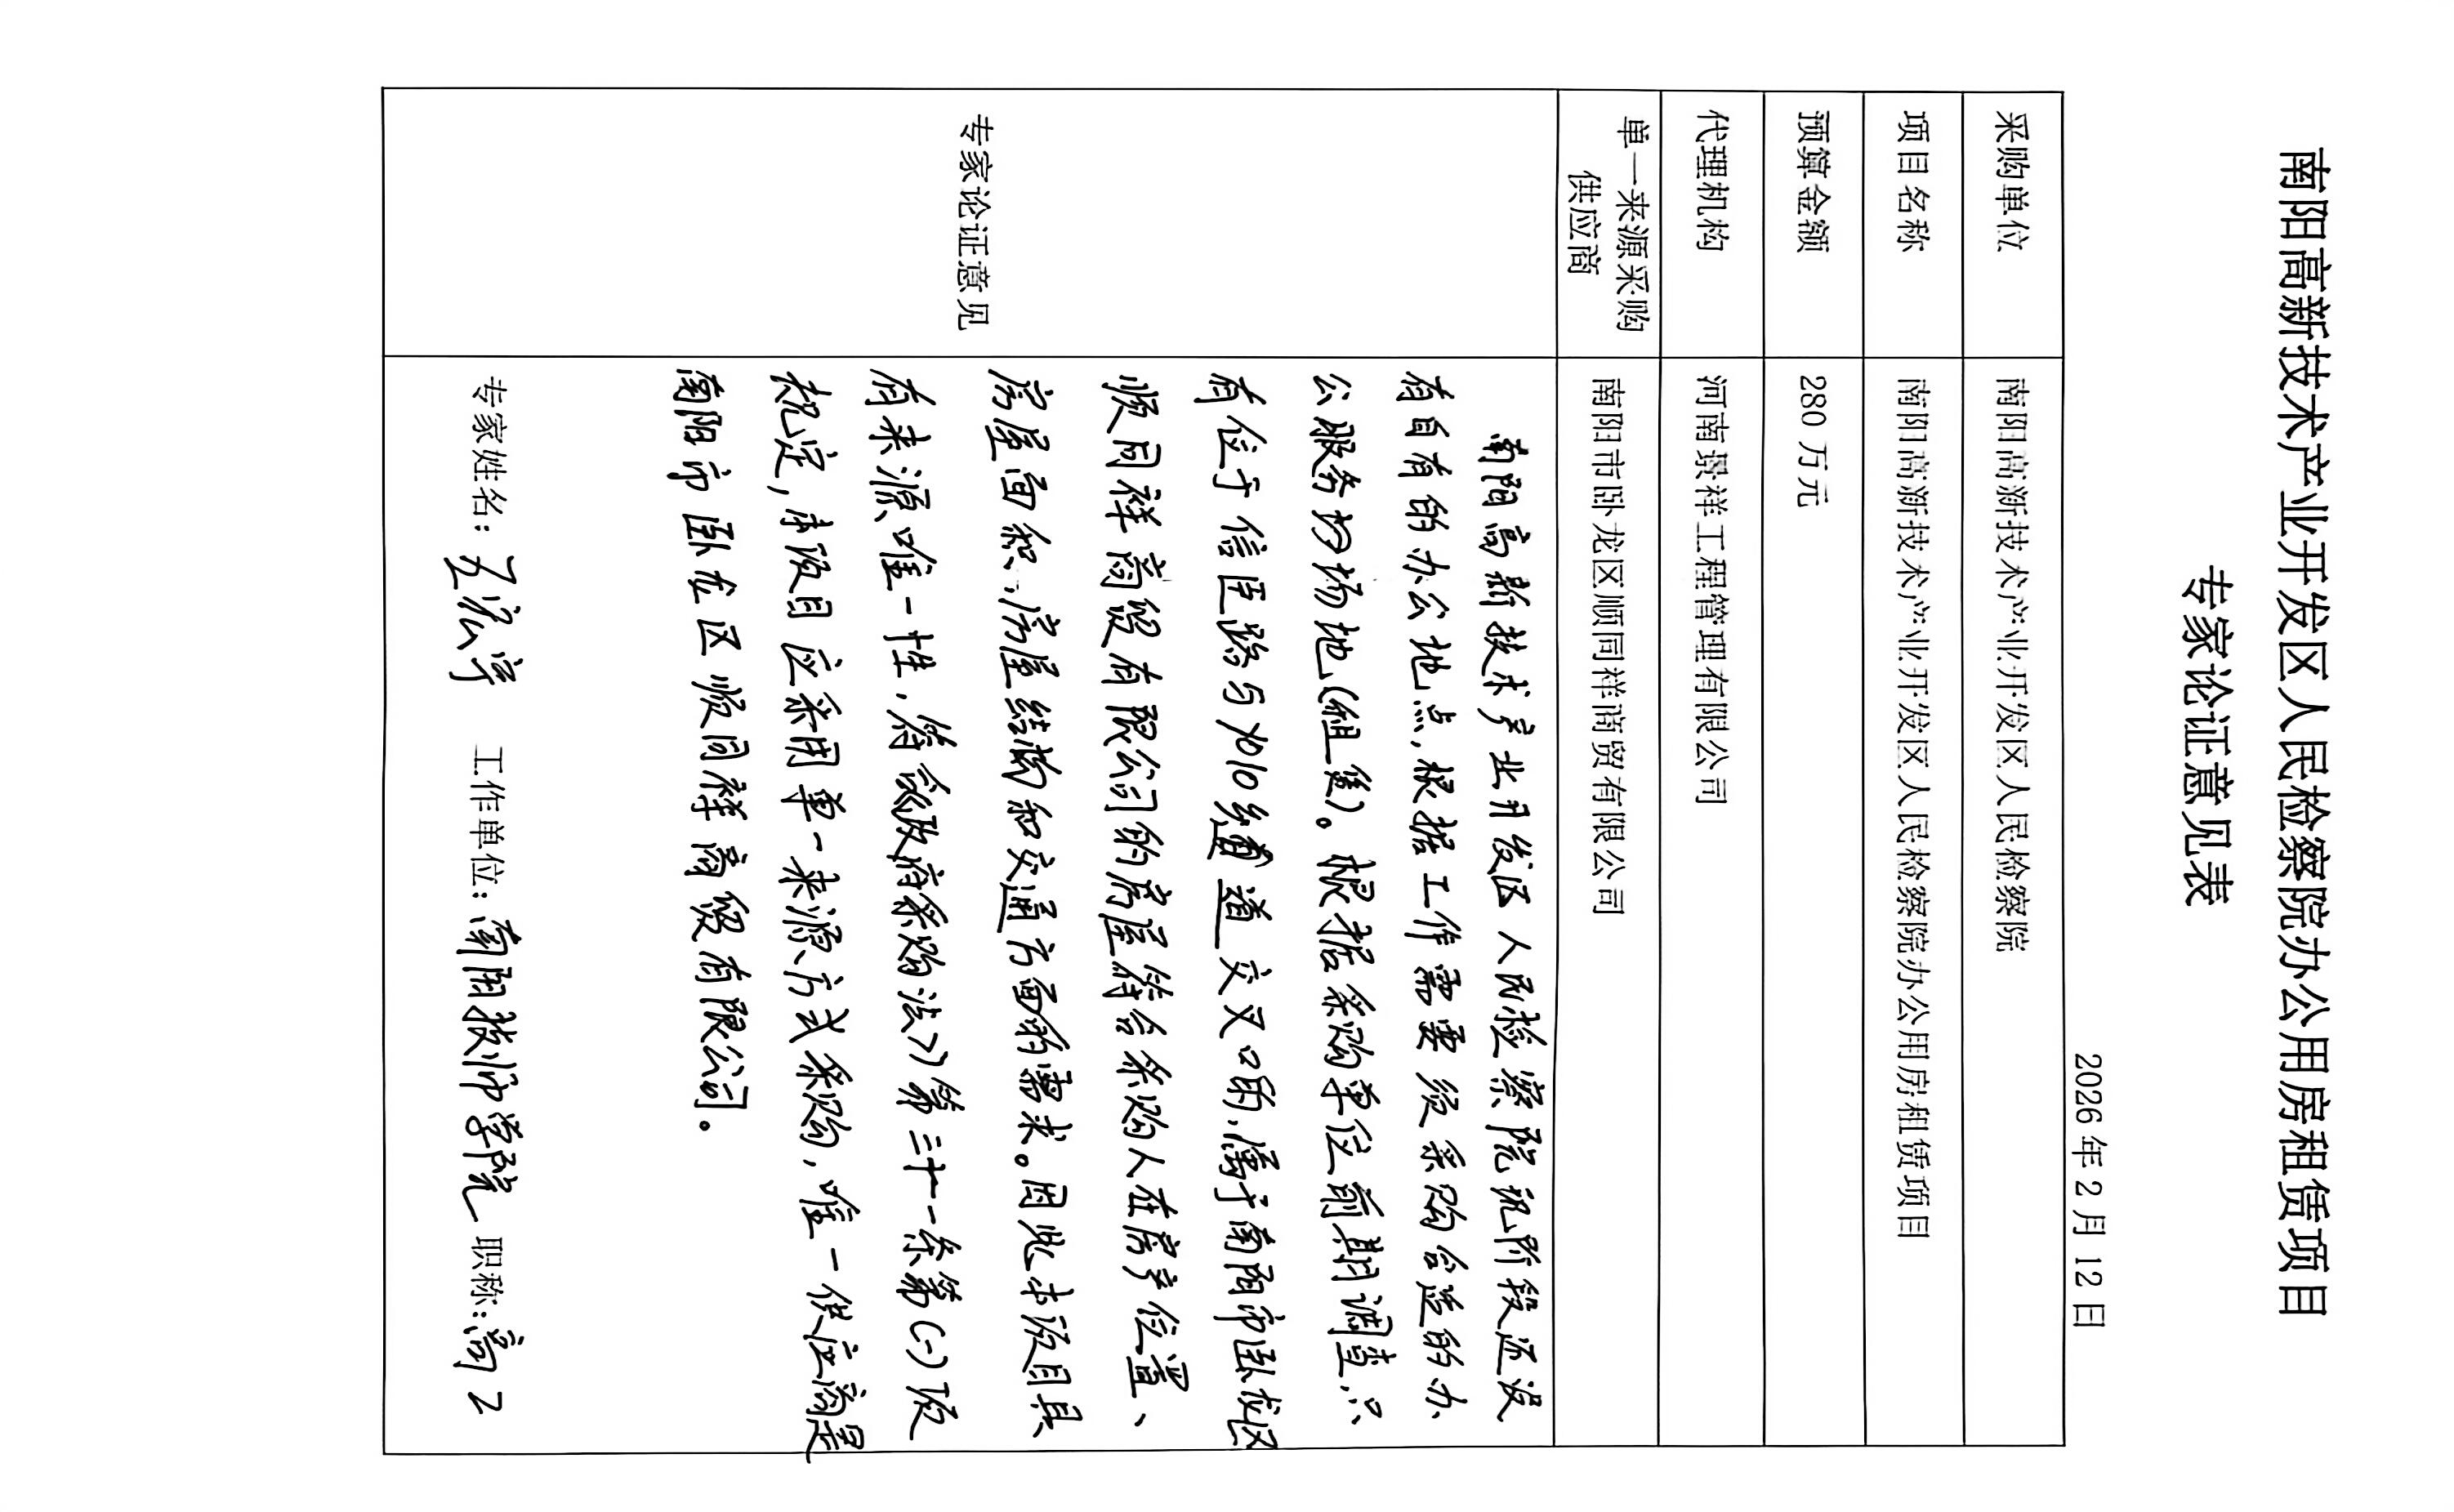 南阳高新技术产业开发区人民检察院办公用房租赁项目
专家论证意见表
2026 年 2 月 12 日
采购单位 南阳高新技术产业开发区人民检察院
项目名称 南阳高新技术产业开发区人民检察院办公用房租赁项目
预算金额 280 万元
代理机构 河南景祥工程管理有限公司
单一来源采购
供应商 南阳市卧龙区顺同祥商贸有限公司
专家论证意见
南阳高新技术产业开发区人民检察院现阶段还没
有自有的办公地点,根据工作需要须采购合适的办
公服务场地(租赁)。根据采购单位前期调查,只
有位于信臣路与X010县道交叉口的,属于南阳市卧龙区
顺同祥商贸有限公司的房屋符合采购人在房产位置、
房屋面积、房屋结构和交通方面的需求。因此本项目具
有来源唯一性,符合政府采购法》第三十一条第(一)项
规定,本项目应采用单一来源方式采购,唯一供应商是
南阳市卧龙区顺同祥商贸有限公司。
专家姓名: 工作单位: 南阳技师学院 职称: 高工